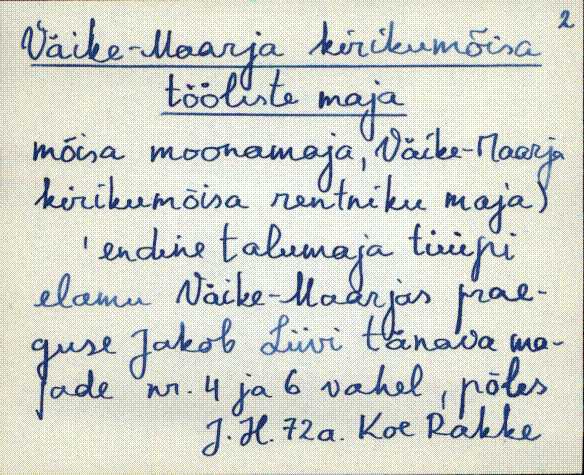 2
Väike-Maarja kirikumõisa
tööliste maja
mõisa moonamaja, Väike-Maarja
kirikumõisa rentniku maja)
' endine talumaja tüüpi
elamu Väike-Maarjas prae-
guse Jakob Liivi tänava ma-
jade nr. 4 ja 6 vahel, põles
J. H. 72a. Koe Rakke